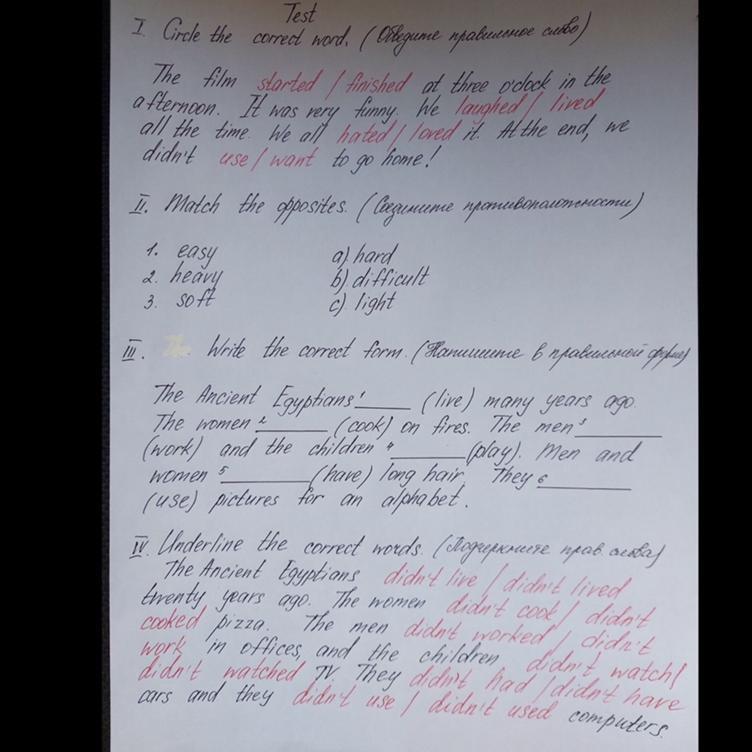 Test
I. Circle the correct word. (Обведите правильное слово)
The film started / finished at three o'clock in the
afternoon. It was very funny. We laughed / lived
all the time. We all hated / loved it. At the end, we
didn't use / want to go home!
II. Match the opposites. (Соедините противоположности)
1. easy a) hard
2. heavy b) difficult
3. soft c) light
III. Write the correct form. (Напишите в правильной форме)
The Ancient Egyptians 1____ (live) many years ago.
The women 2______ (cook) on fires. The men 3______
(work) and the children 4______ (play). Men and
women 5______ (have) long hair. They 6______
(use) pictures for an alphabet.
IV. Underline the correct words. (Подчеркните прав. слова)
The Ancient Egyptians didn't live / didn't lived
twenty years ago. The women didn't cook / didn't
cooked pizza. The men didn't worked / didn't
work in offices, and the children didn't watch /
didn't watched TV. They didn't had / didn't have
cars and they didn't use / didn't used computers.